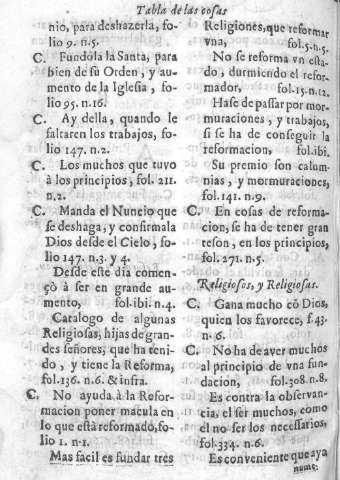 Tabla de las cosas
nio, para deshazerla, fo-
lio 9. n.5.
C. Fundòla la Santa, para
bien de su Orden, y au-
mento de la Iglesia, fo-
lio 95. n.16.
C. Ay della, quando le
faltaren los trabajos, fo-
lio 147. n.2.
C. Los muchos que tuvo
à los principios, fol. 211.
n.2.
C. Manda el Nuncio que
se deshaga, y confirmala
Dios desde el Cielo, fo-
lio 147. n.3. y 4.
Desde este dia comen-
çò à ser en grande au-
mento, fol.ibi. n.4.
Catalogo de algunas
Religiosas, hijas de gran-
des señores, que ha teni-
do, y tiene la Reforma,
fol.136. n.6. & infra.
C. No ayuda à la Refor-
macion poner macula en
lo que està reformado, fo-
lio 1. n.1.
Mas facil es fundar tres
Religiones, que reformar
vna, fol.5.n.5.
No se reforma vn esta-
do, durmiendo el refor-
mador, fol.15.n.12.
Hase de passar por mor-
muraciones, y trabajos,
si se ha de conseguir la
reformacion, fol.ibi.
Su premio son calum-
nias, y mormuraciones,
fol.141. n.9.
C. En cosas de reforma-
cion, se ha de tener gran
teson, en los principios,
fol.271. n.5.
Religiosos, y Religiosas.
C. Gana mucho cõ Dios,
quien los favorece, f.43.
n.6.
C. No ha de aver muchos
al principio de vna fun-
dacion, fol.308.n.8.
Es contra la observan-
cia, el ser muchos, como
el no ser los necessarios,
fol.334. n.6.
Es conveniente que aya
nume-